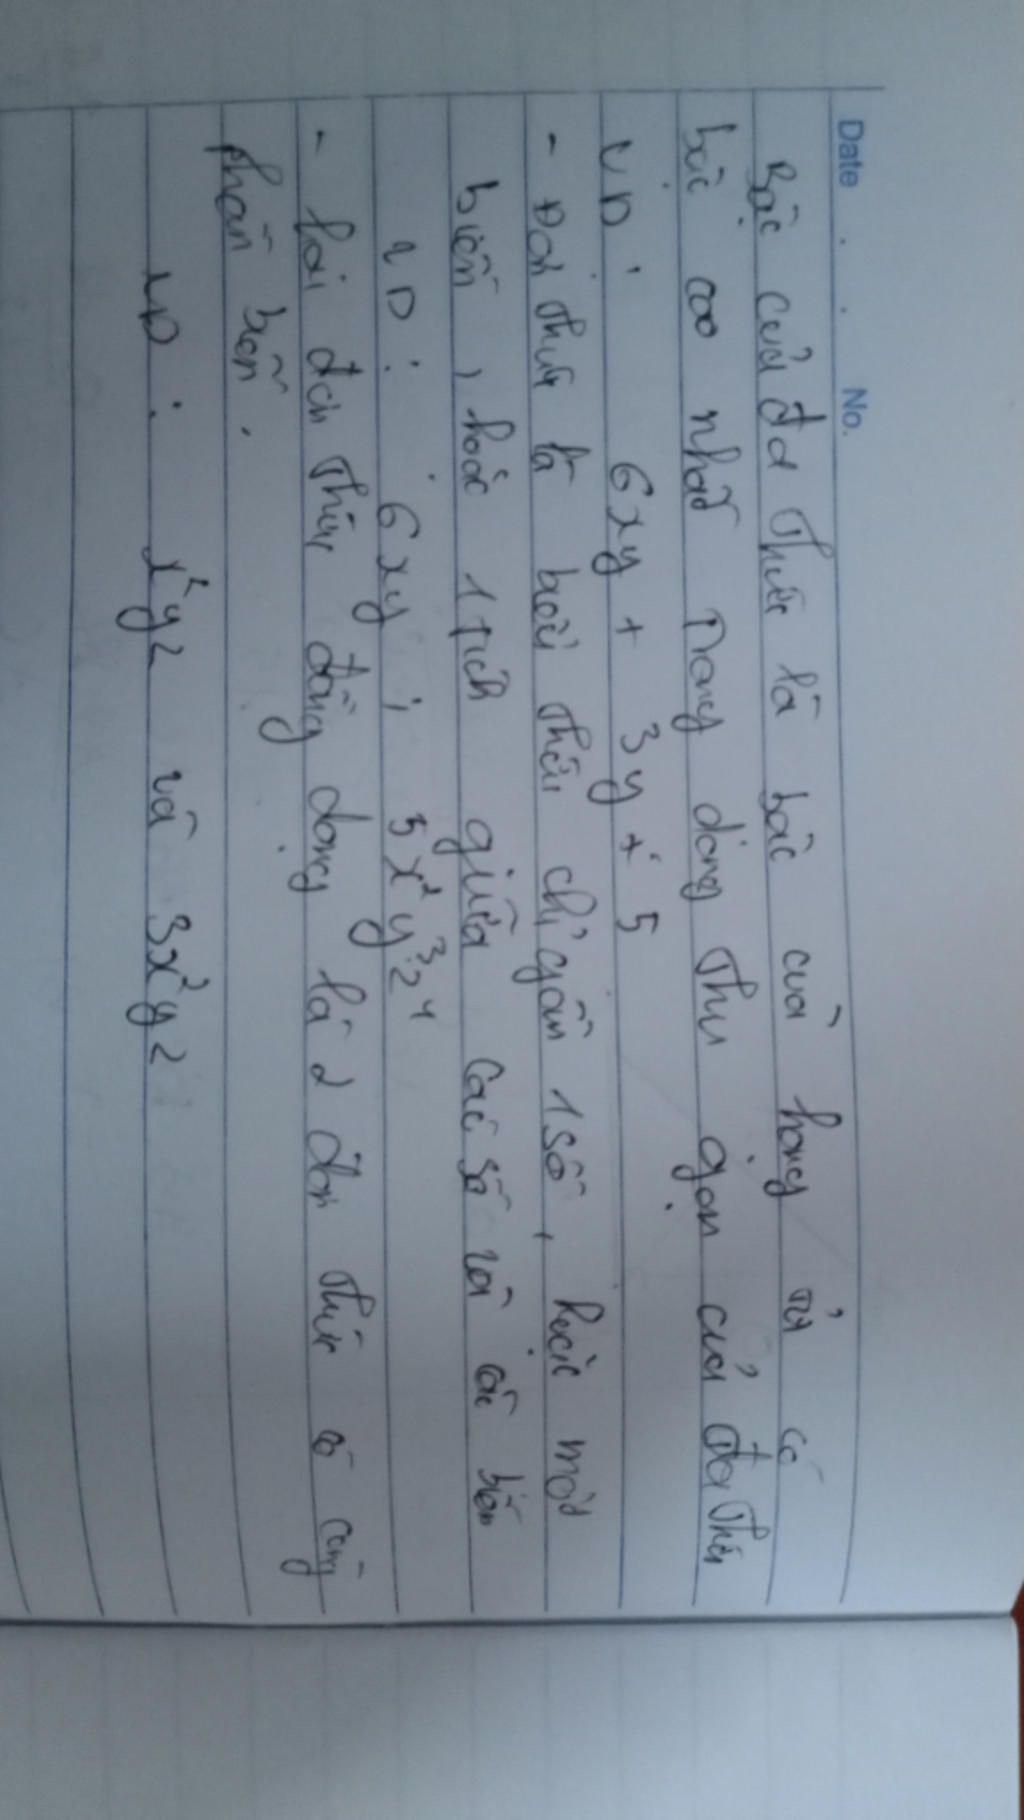 Date . . No.
Bậc của đa thức là bậc của hạng tử có
bậc cao nhất trong dạng thu gọn của đa thức
VD: 6xy + 3y + 5
- Đơn thức là biểu thức chỉ gồm 1 số, hoặc một
biến, hoặc 1 tích giữa các số và các biến
VD: 6xy ; 5x²y³z⁴
- hai đơn thức đồng dạng là 2 đơn thức có cùng
phần biến.
VD: x²yz và 3x²yz